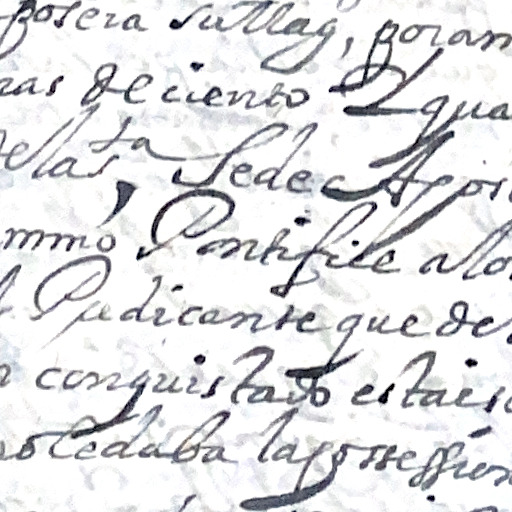 posera su Mag, goram
ras de ciento Y qua
de la Sta Sede Apos
mmo Pontifice a lo
Predicante que de
conquistado esta is
le daba la possession